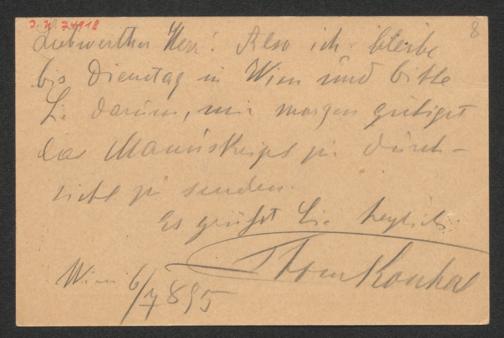 J. N. 74918
8
Liebwerther Herr! Also ich bleibe
bis Dienstag in Wien und bitte
Sie darum, mir morgen gütigst
das Manuskript zu Durch-
sicht zu senden.
Es grüßt Sie herzlich
Wien 6/7 895